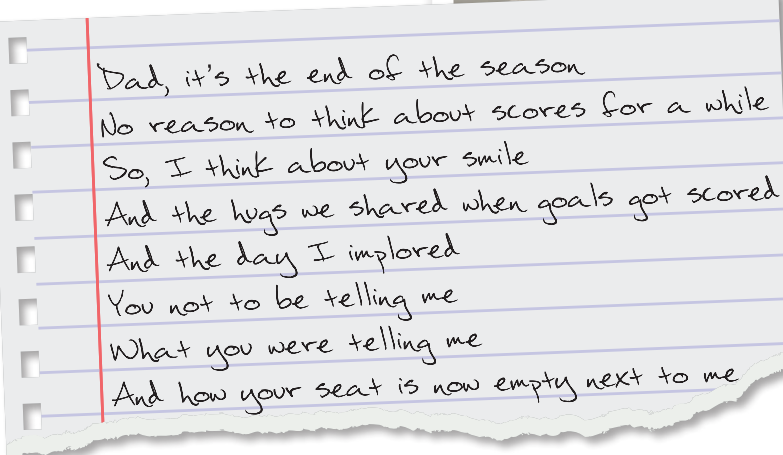 Dad, it's the end of the season
No reason to think about scores for a while
So, I think about your smile
And the hugs we shared when goals got scored
And the day I implored
You not to be telling me
What you were telling me
And how your seat is now empty next to me